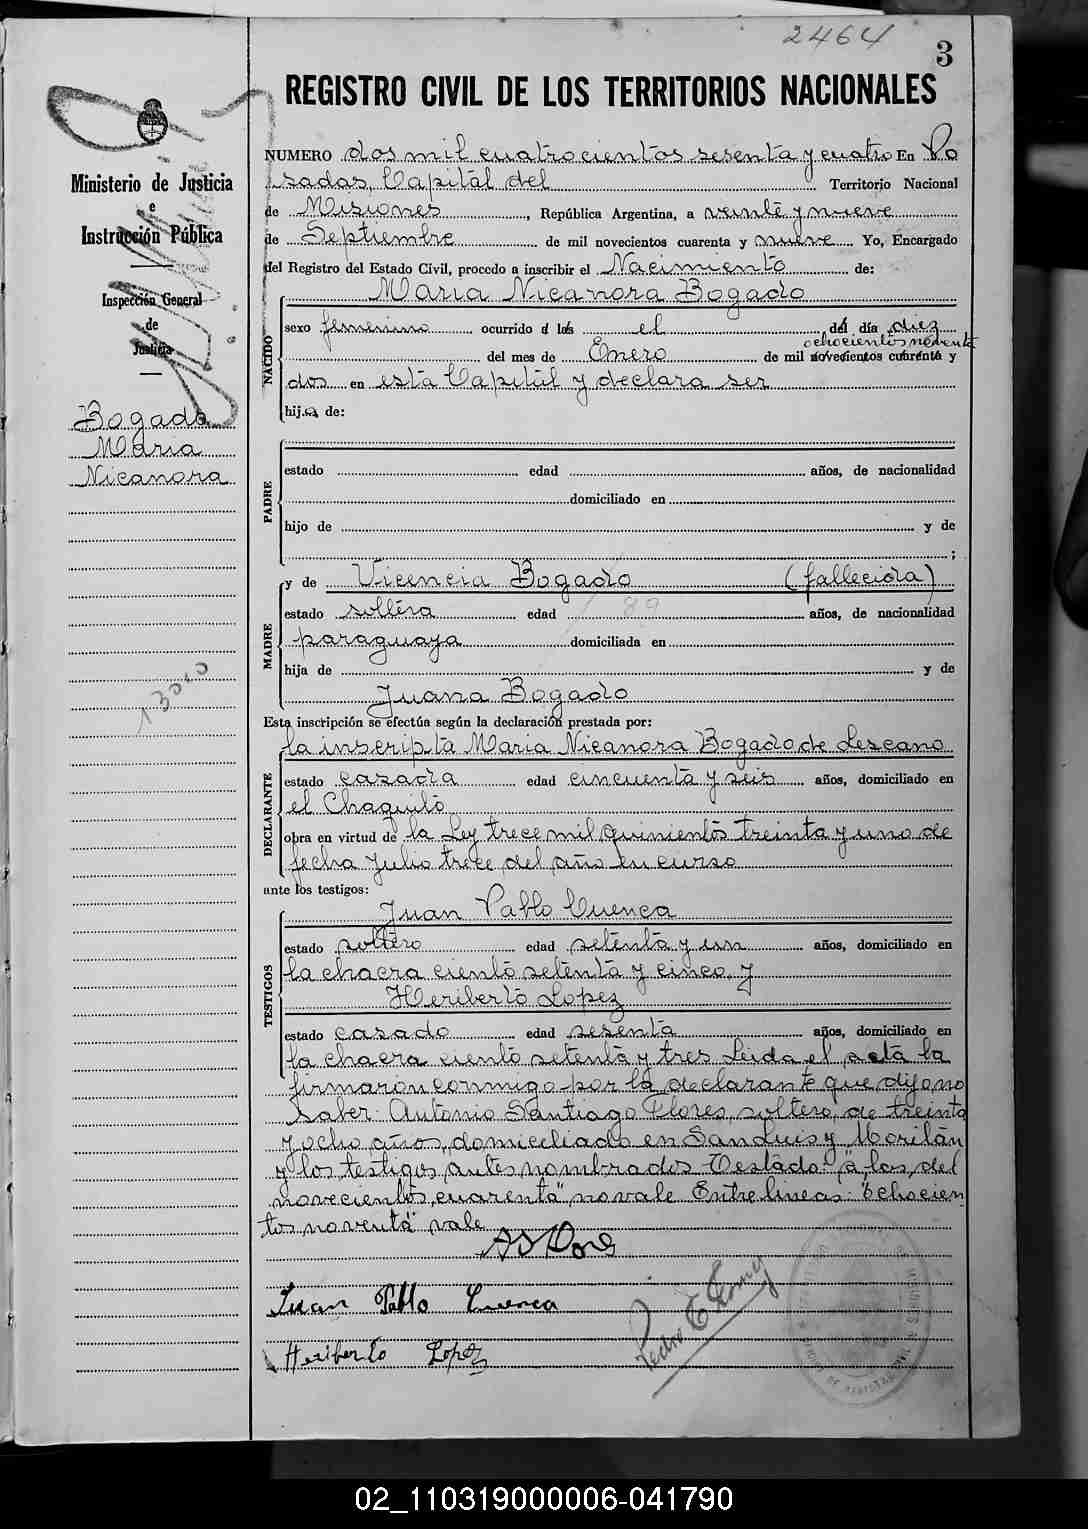 2464
3
REGISTRO CIVIL DE LOS TERRITORIOS NACIONALES
Ministerio de Justicia
e
Instrucción Pública
Inspección General
de
Justicia
Bogado
Maria
Nicanora
13010
NUMERO dos mil cuatrocientos sesenta y cuatro En Po
sadas, Capital del Territorio Nacional
de Misiones, República Argentina, a veinte y nueve
de Septiembre de mil novecientos cuarenta y nueve Yo, Encargado
del Registro del Estado Civil, procedo a inscribir el Nacimiento de:
NACIDO
Maria Nicanora Bogado
sexo femenino ocurrido á las el del día diez
ochocientos noventa
del mes de Enero de mil novecientos cuarenta y
dos en esta Capital y declara ser
hija de:
PADRE
estado edad años, de nacionalidad
domiciliado en
hijo de y de
;
MADRE
y de Vicencia Bogado (fallecida)
estado soltera edad 89 años, de nacionalidad
paraguaya domiciliada en
hija de y de
Juana Bogado
Esta inscripción se efectúa según la declaración prestada por:
DECLARANTE
la inscripta Maria Nicanora Bogado de Lescano
estado casada edad cincuenta y seis años, domiciliado en
el Chaquito
obra en virtud de la Ley trece mil quinientos treinta y uno de
fecha Julio trece del año en curso
ante los testigos:
TESTIGOS
Juan Pablo Cuenca
estado soltero edad setenta y un años, domiciliado en
la chacra ciento setenta y cinco, y
Heriberto Lopez
estado casado edad sesenta años, domiciliado en
la chacra ciento setenta y tres Leida el acta la
firmaron conmigo por la declarante que dijo no
saber: Antonio Santiago Flores, soltero, de treinta
y ocho años, domiciliado en San Luis y Morilán
y los testigos antes nombrados Testado: "á las, del
novecientos, cuarenta" no vale Entre lineas: "ochocien
tos noventa" vale
Juan Pablo Cuenca
Heriberto Lopez
02_110319000006-041790